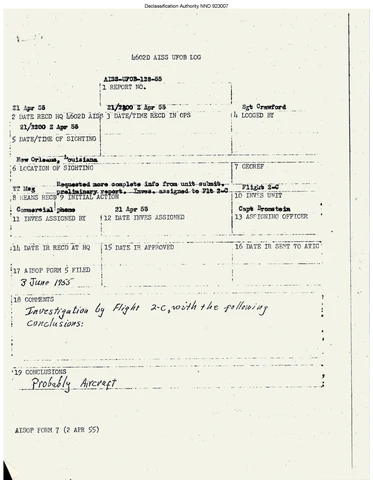 Declassification Authority NND 923007
4602D AISS UFOB LOG
AISS-UFOB-128-55
1 REPORT NO.
21 Apr 55
21/2200 Z Apr 55
Sgt Crawford
2 DATE RECD HQ 4602D AISS
3 DATE/TIME RECD IN OPS
4 LOGGED BY
21/1200 Z Apr 55
5 DATE/TIME OF SIGHTING
New Orleans, Louisiana
6 LOCATION OF SIGHTING
7 GEOREF
Requested more complete info from unit submit.
TT Msg
preliminary report. Inves. assigned to Flt 2-C
Flight 2-C
8 MEANS RECD
9 INITIAL ACTION
10 INVES UNIT
Commercial phone
21 Apr 55
Capt Bronstein
11 INVES ASSIGNED BY
12 DATE INVES ASSIGNED
13 ASSIGNING OFFICER
14 DATE IR RECD AT HQ
15 DATE IR APPROVED
16 DATE IR SENT TO ATIC
17 AISOP FORM 5 FILED
3 June 1955
18 COMMENTS
Investigation by Flight 2-C, with the following
conclusions:
19 CONCLUSIONS
Probably Aircraft
AISOP FORM 7 (2 APR 55)